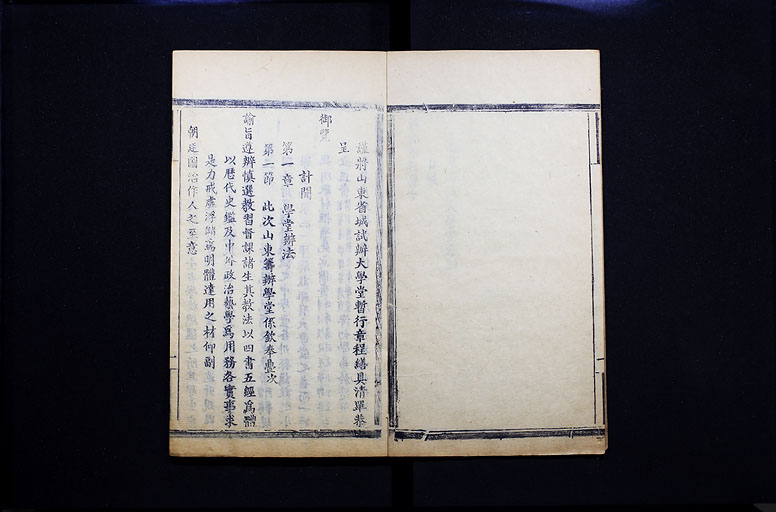 謹將山東省城試辦大學堂暫行章程繕具清單恭
呈
御覽
計開
第一章　學堂辦法
第一節　此次山東籌辦學堂係欽奉疊次
諭旨遵辦慎選教習督課諸生其教法以四書五經爲體
以歷代史鑑及中外政治藝學爲用務各實事求
是力戒虛浮儲爲明體達用之材仰副
朝廷圖治作人之至意